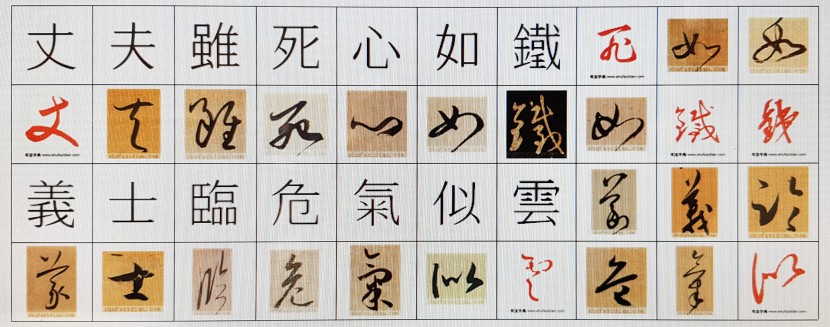 丈 夫 雖 死 心 如 鐵 死 如 如
丈 夫 雖 死 心 如 鐵 如 鐵 鐵
義 士 臨 危 氣 似 雲 義 義 臨
義 士 臨 危 氣 似 雲 危 氣 似